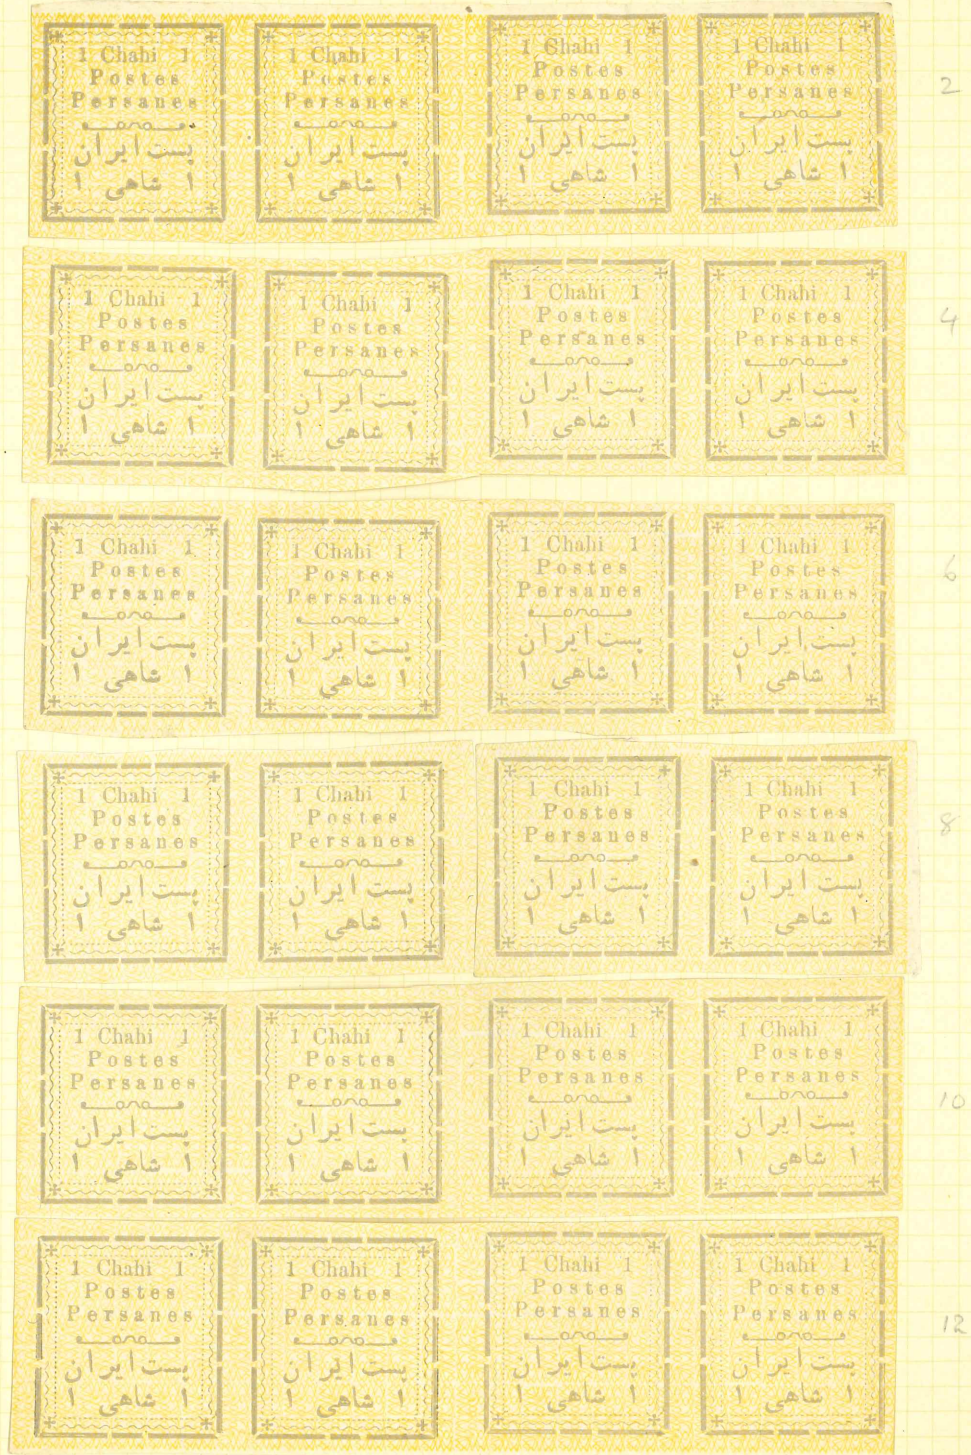 1 Chahi 1
Postes
Persanes
پست ایران
۱ شاهی ۱
1 Chahi 1
Postes
Persanes
پست ایران
۱ شاهی ۱
1 Chahi 1
Postes
Persanes
پست ایران
۱ شاهی ۱
1 Chahi 1
Postes
Persanes
پست ایران
۱ شاهی ۱
2
1 Chahi 1
Postes
Persanes
پست ایران
۱ شاهی ۱
1 Chahi 1
Postes
Persanes
پست ایران
۱ شاهی ۱
1 Chahi 1
Postes
Persanes
پست ایران
۱ شاهی ۱
1 Chahi 1
Postes
Persanes
پست ایران
۱ شاهی ۱
4
1 Chahi 1
Postes
Persanes
پست ایران
۱ شاهی ۱
1 Chahi 1
Postes
Persanes
پست ایران
۱ شاهی ۱
1 Chahi 1
Postes
Persanes
پست ایران
۱ شاهی ۱
1 Chahi 1
Postes
Persanes
پست ایران
۱ شاهی ۱
6
1 Chahi 1
Postes
Persanes
پست ایران
۱ شاهی ۱
1 Chahi 1
Postes
Persanes
پست ایران
۱ شاهی ۱
1 Chahi 1
Postes
Persanes
پست ایران
۱ شاهی ۱
1 Chahi 1
Postes
Persanes
پست ایران
۱ شاهی ۱
8
1 Chahi 1
Postes
Persanes
پست ایران
۱ شاهی ۱
1 Chahi 1
Postes
Persanes
پست ایران
۱ شاهی ۱
1 Chahi 1
Postes
Persanes
پست ایران
۱ شاهی ۱
1 Chahi 1
Postes
Persanes
پست ایران
۱ شاهی ۱
10
1 Chahi 1
Postes
Persanes
پست ایران
۱ شاهی ۱
1 Chahi 1
Postes
Persanes
پست ایران
۱ شاهی ۱
1 Chahi 1
Postes
Persanes
پست ایران
۱ شاهی ۱
1 Chahi 1
Postes
Persanes
پست ایران
۱ شاهی ۱
12